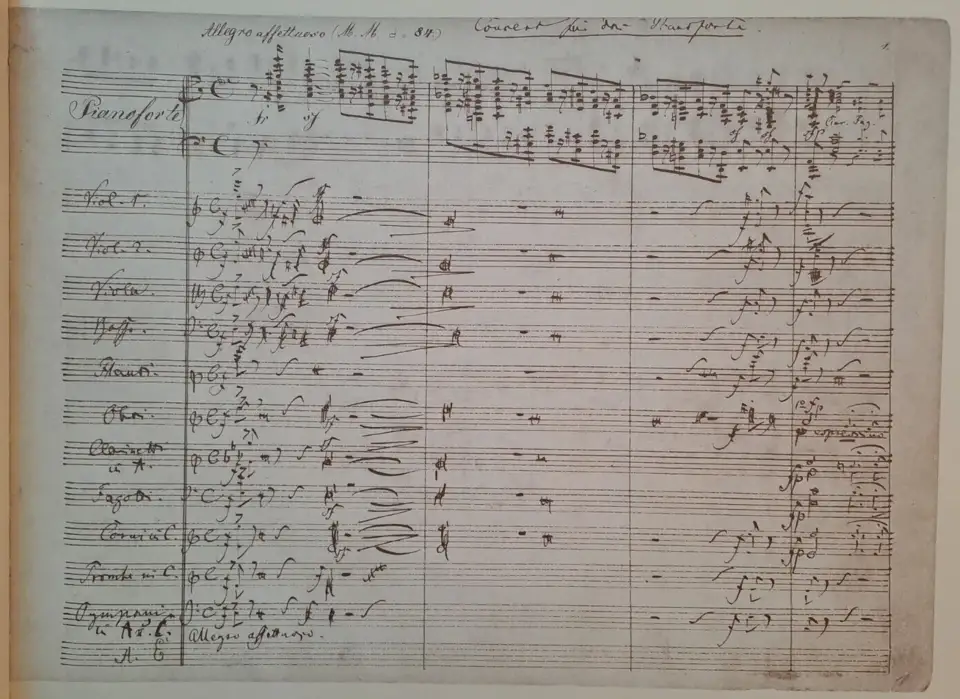 Allegro affettuoso (M. M ♩ = 84.) Concert für das Pianoforte.
1.
Pianoforte
sf
Viol. 1.
Viol. 2.
Viola.
Bassi.
Flauti.
Oboi.
espressivo
Clarinetti
in A.
Fagotti.
Corni in C.
Trombe in C.
Tympani.
in A. C.
Allegro affettuoso.